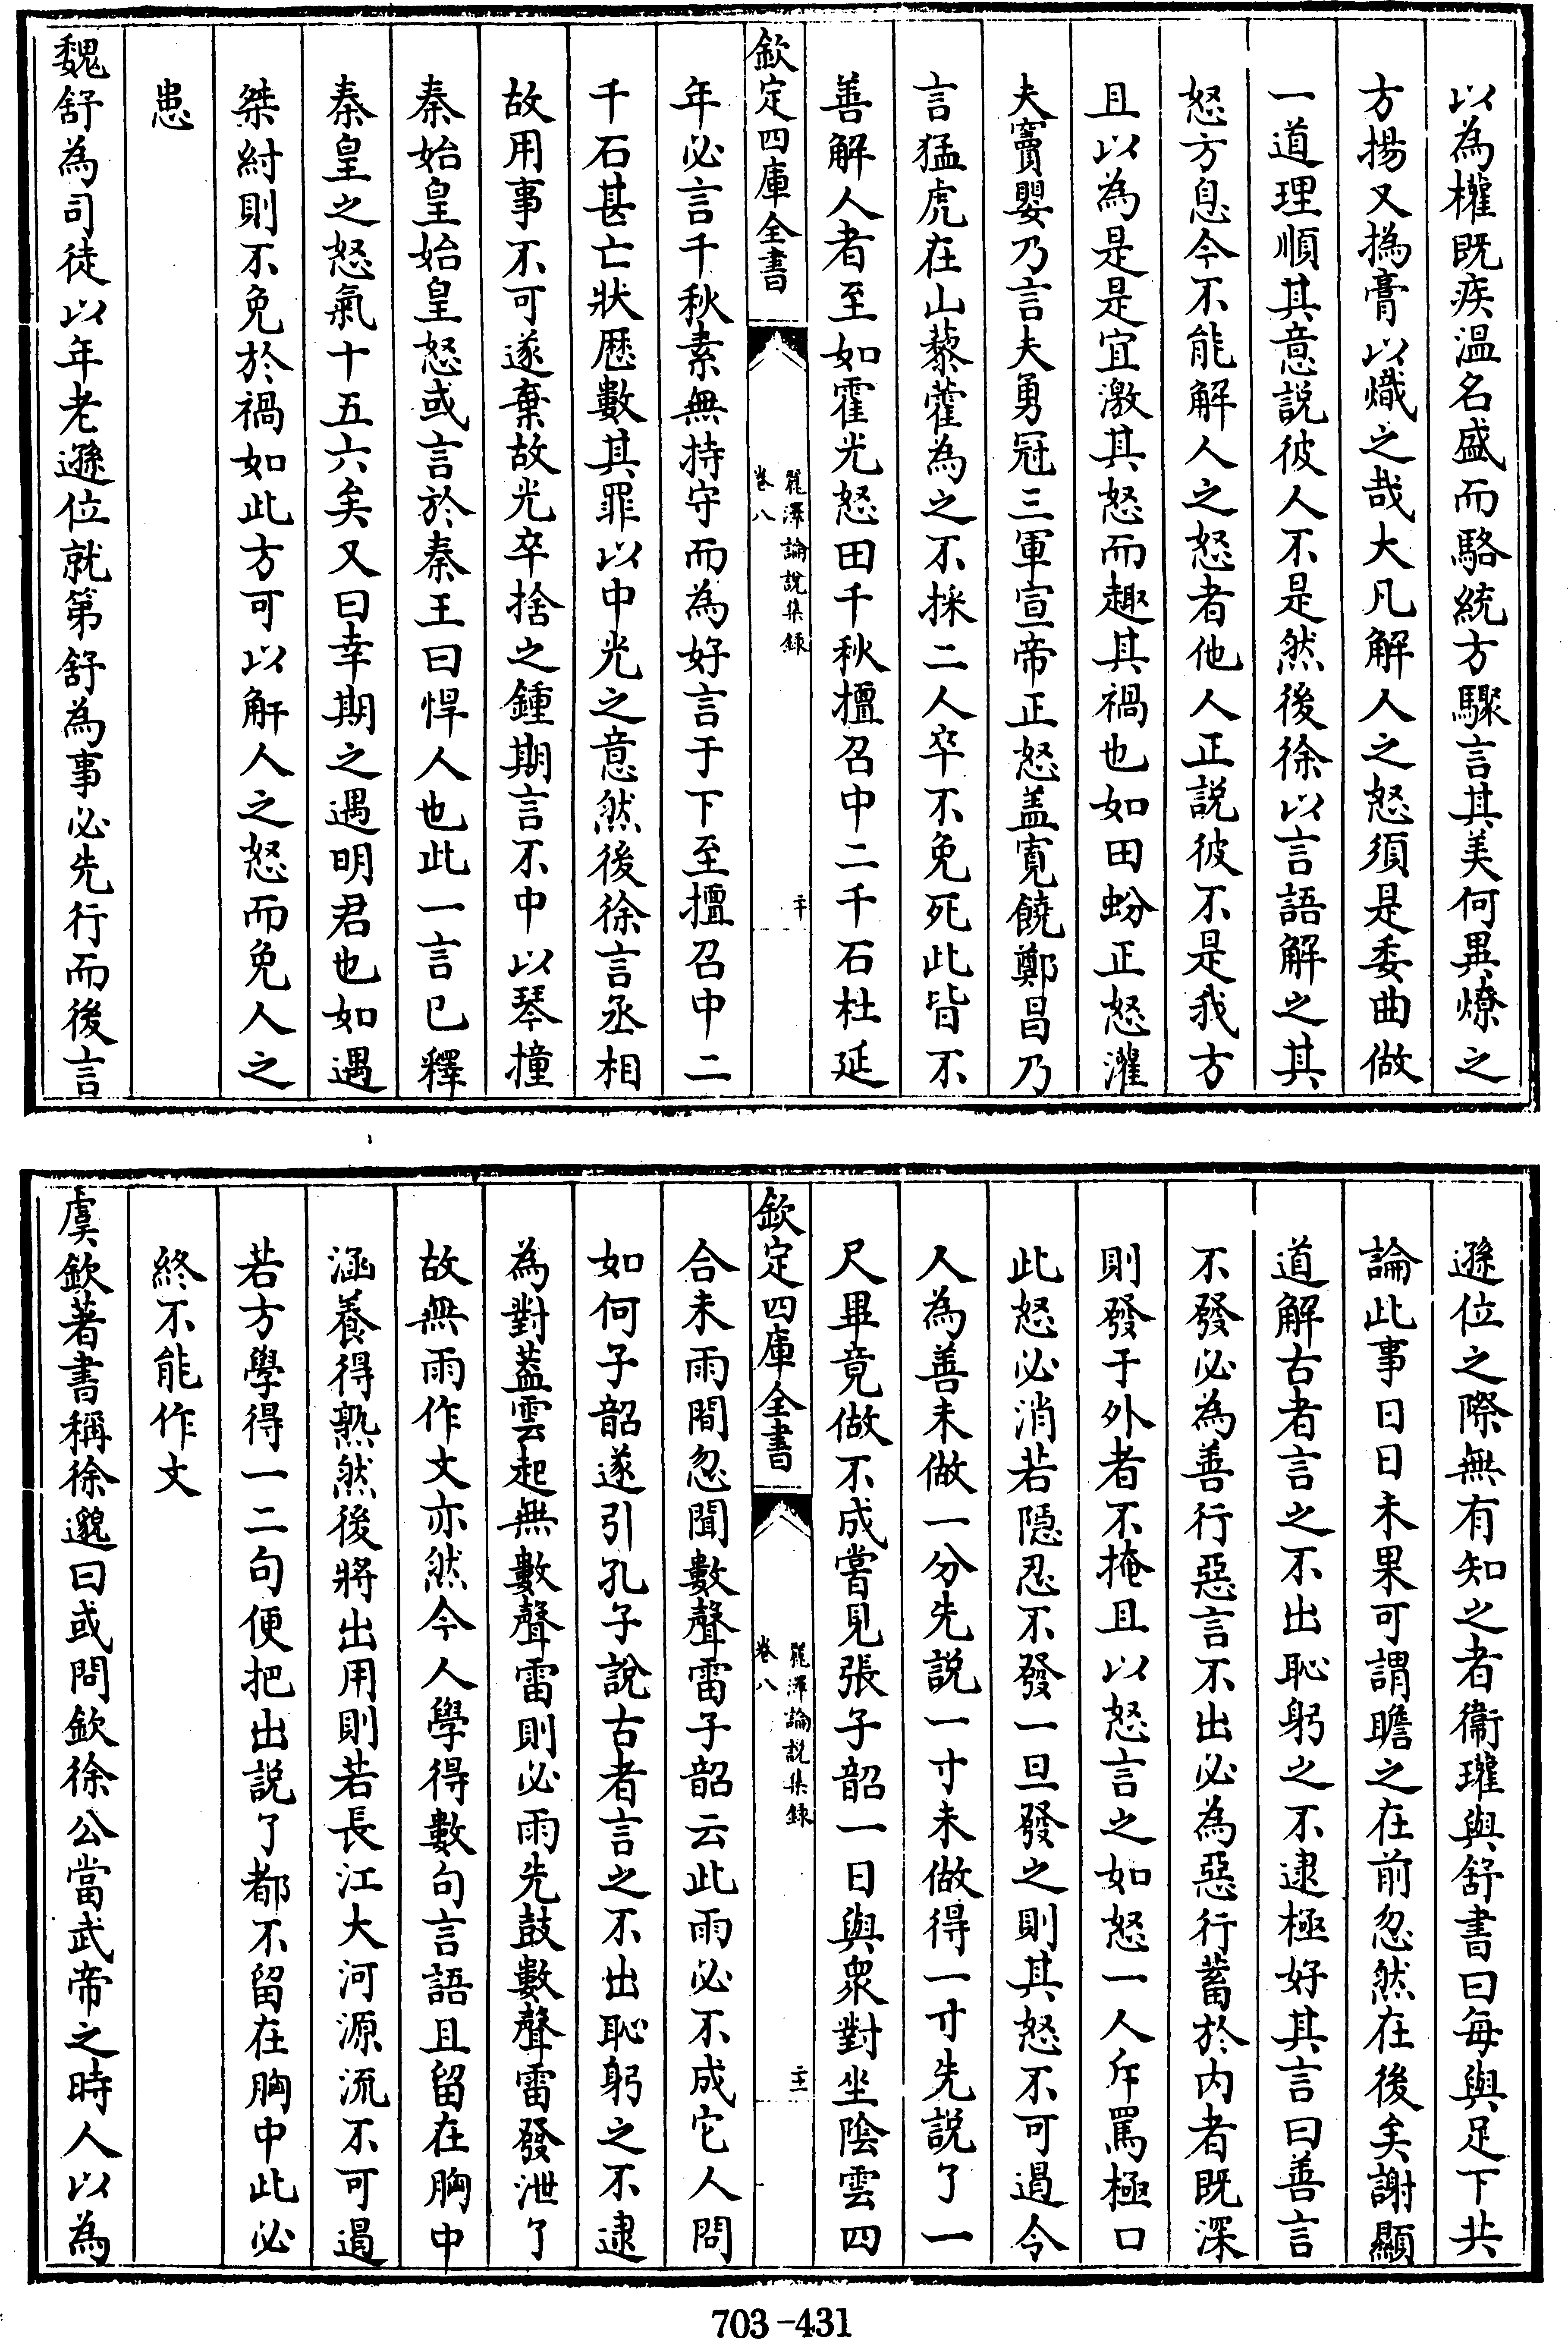 以為權既疾温名盛而駱統方驟言其美何異燎之
方揚又撝膏以熾之哉大凡解人之怒須是委曲做
一道理順其意説彼人不是然後徐以言語解之其
怒方息今不能解人之怒者他人正説彼不是我方
且以為是是宜激其怒而趣其禍也如田蚡正怒灌
夫竇嬰乃言夫勇冠三軍宣帝正怒蓋寛饒鄭昌乃
言猛虎在山藜藿為之不採二人卒不免死此皆不
善解人者至如霍光怒田千秋擅召中二千石杜延
欽定四庫全書
麗澤論說集錄
卷八
二十
年必言千秋素無持守而為好言于下至擅召中二
千石甚亡狀歴數其罪以中光之意然後徐言丞相
故用事不可遂棄故光卒捨之鍾期言不中以琴撞
秦始皇始皇怒或言於秦王曰悍人也此一言已釋
秦皇之怒氣十五六矣又曰幸期之遇明君也如遇
桀紂則不免於禍如此方可以解人之怒而免人之
患
魏舒為司徒以年老遜位就第舒為事必先行而後言
遜位之際無有知之者衞瓘與舒書曰每與足下共
論此事日日未果可謂瞻之在前忽然在後矣謝顯
道解古者言之不出恥躬之不逮極好其言曰善言
不發必為善行惡言不出必為惡行蓄於内者既深
則發于外者不掩且以怒言之如怒一人斥罵極口
此怒必消若隠忍不發一旦發之則其怒不可遏今
人為善未做一分先説一寸未做得一寸先説了一
尺畢竟做不成嘗見張子韶一日與衆對坐陰雲四
欽定四庫全書
麗澤論說集錄
卷八
二十一
合未雨間忽聞數聲雷子韶云此雨必不成它人問
如何子韶遂引孔子說古者言之不出恥躬之不逮
為對蓋雲起無數聲雷則必雨先鼓數聲雷發泄了
故無雨作文亦然今人學得數句言語且留在胸中
涵養得熟然後將出用則若長江大河源流不可遏
若方學得一二句便把出説了都不留在胸中此必
終不能作文
虞欽著書稱徐邈曰或問欽徐公當武帝之時人以為
703-431